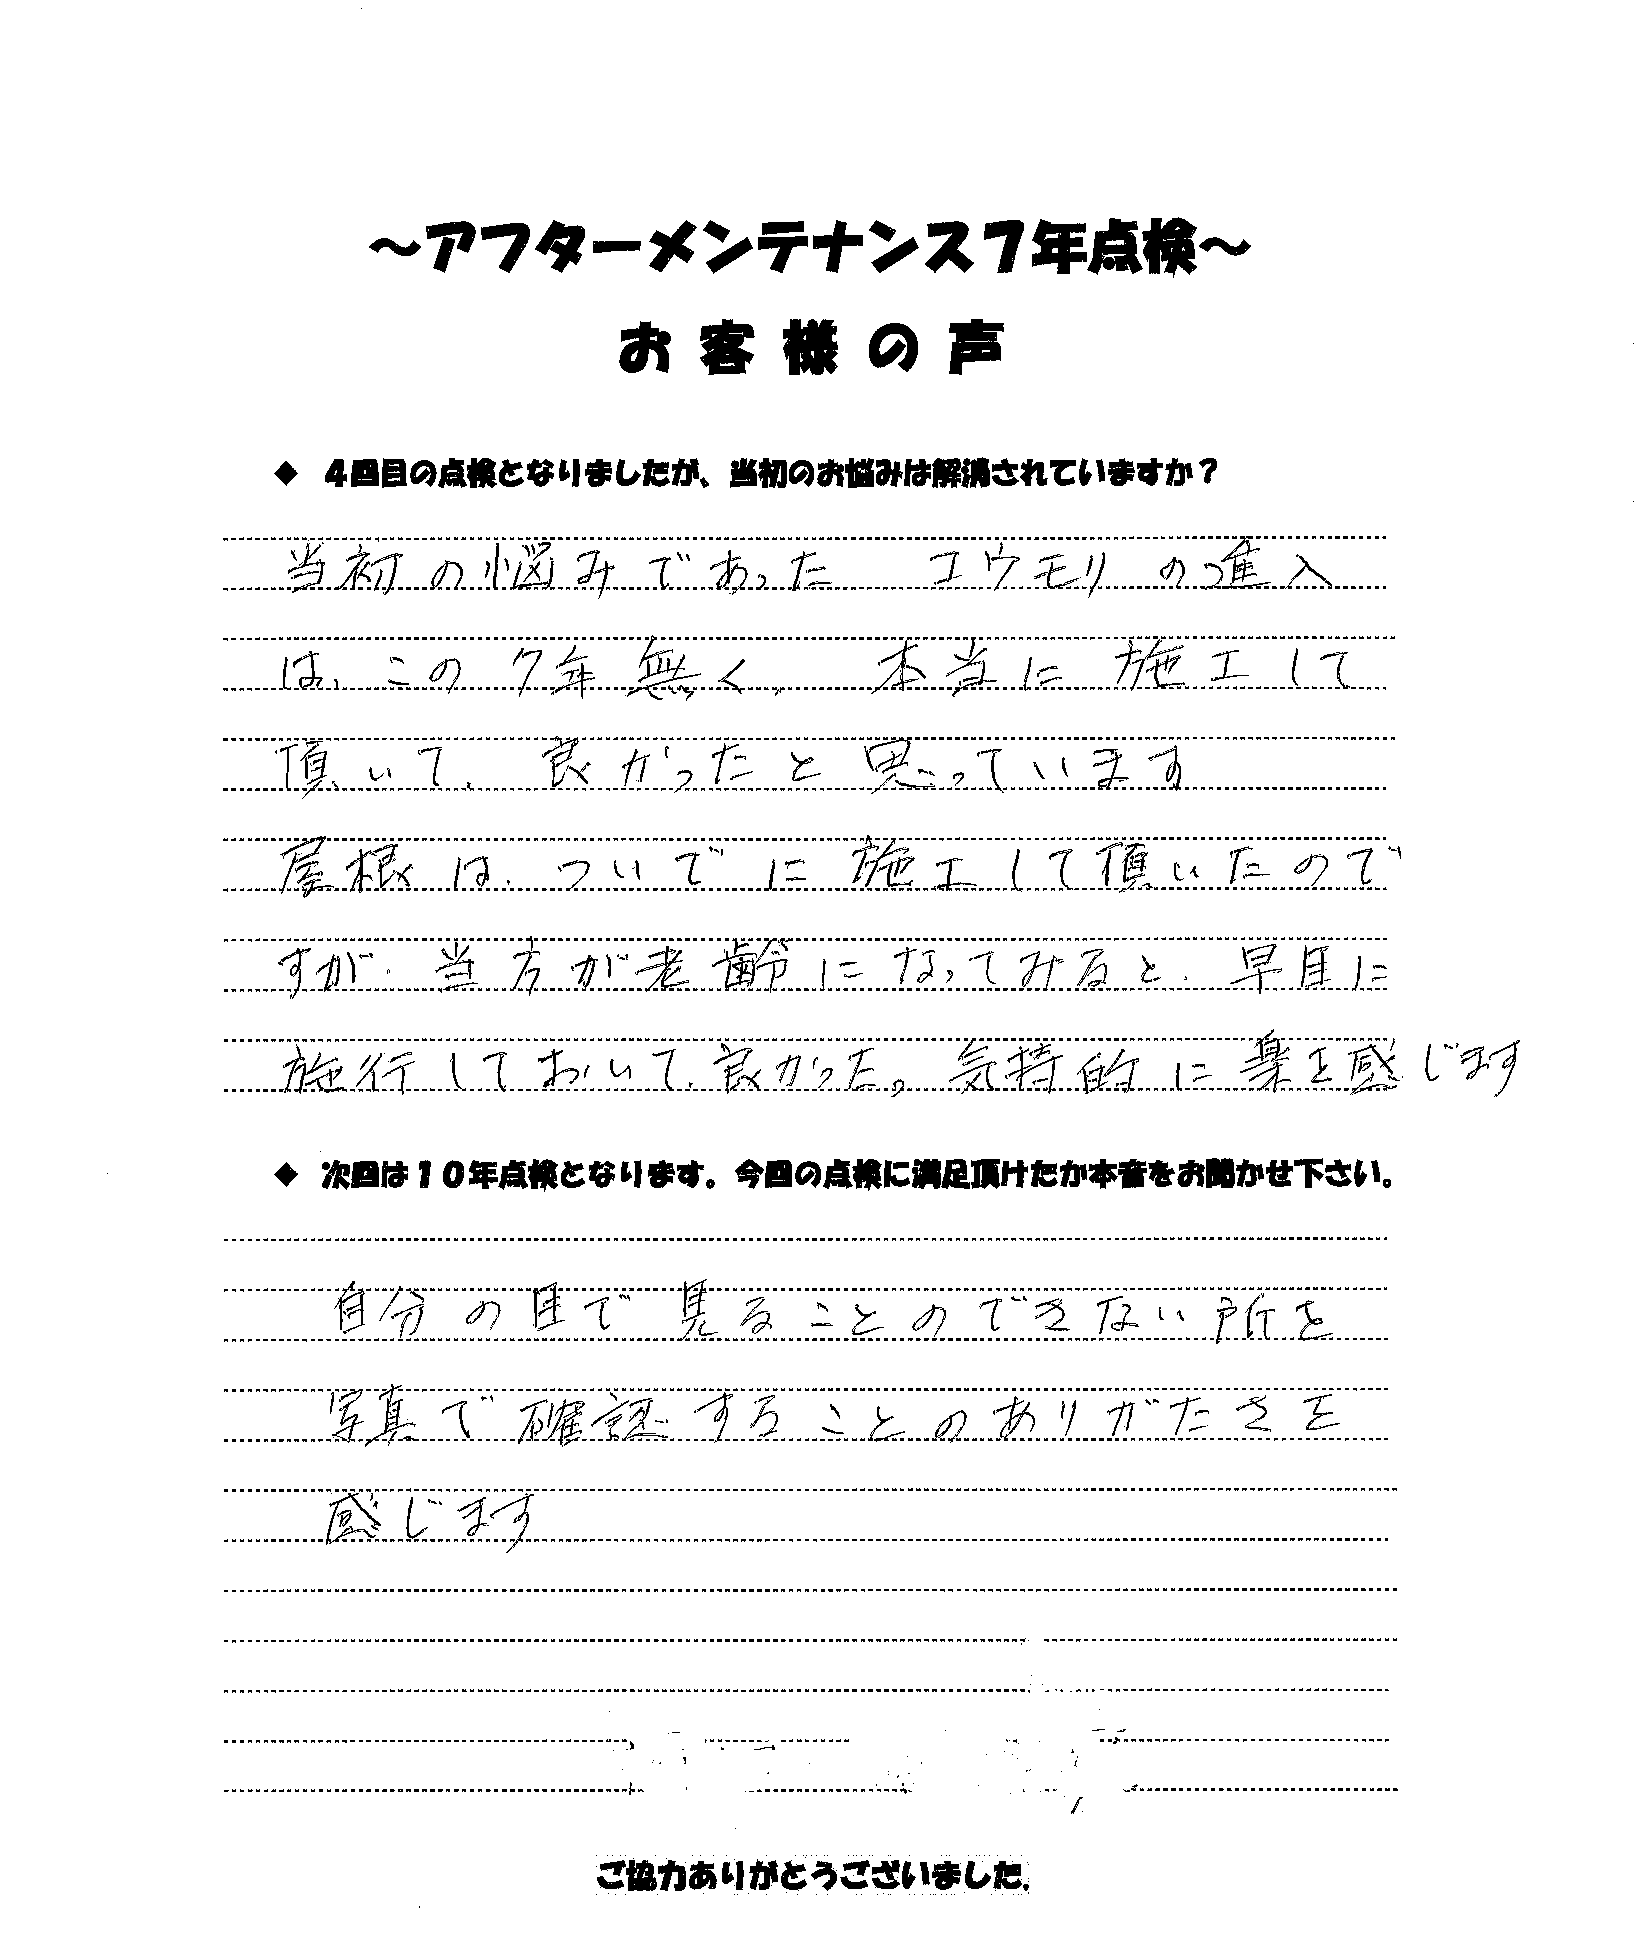 ～アフターメンテナンス7年点検～
お客様の声
◆ 4回目の点検となりましたが、当初のお悩みは解消されていますか？
当初の悩みであった コウモリの進入
は、この7年無く、本当に施工して
頂いて、良かったと思っています
屋根は、ついでに施工して頂いたので
すが、当方が老齢になってみると、早目に
施行しておいて、良かった。気持的に楽を感じます
◆ 次回は10年点検となります。今回の点検に満足頂けたか本音をお聞かせ下さい。
自分の目で見ることのできない所を
写真で確認することのありがたさを
感じます
ご協力ありがとうございました。